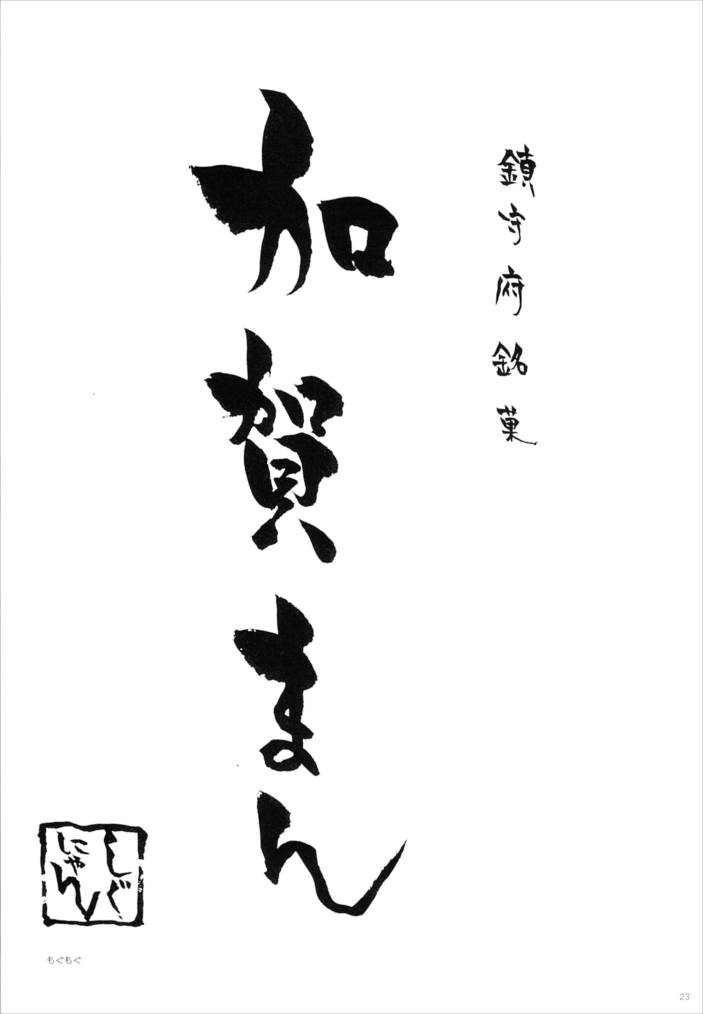 鎮守府銘菓
加賀まん
しぐ
にゃん
もぐもぐ
23